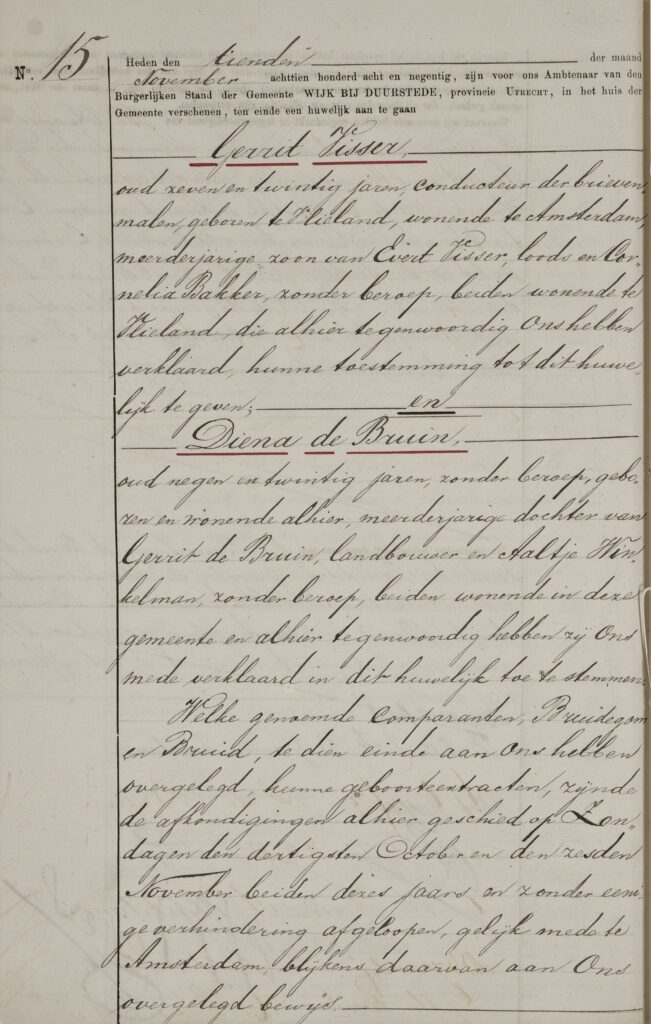 No. 15
Heden den tienden der maand
November achttien honderd acht en negentig, zijn voor ons Ambtenaar van den
Burgerlijken Stand der Gemeente WIJK BIJ DUURSTEDE, provincie UTRECHT, in het huis der
Gemeente verschenen, ten einde een huwelijk aan te gaan
Gerrit Visser,
oud zeven en twintig jaren, conducteur der brieven
malen, geboren te Vlieland, wonende te Amsterdam,
meerderjarige zoon van Evert Visser, loods en Cor-
nelia Bakker, zonder beroep, beiden wonende te
Vlieland, die alhier tegenwoordig Ons hebben
verklaard, hunne toestemming tot dit huwe-
lijk te geven; en
Diena de Bruin,
oud negen en twintig jaren, zonder beroep, gebo-
ren en wonende alhier, meerderjarige dochter van
Gerrit de Bruin, landbouwer en Aaltje Win-
kelman, zonder beroep, beiden wonende in deze
gemeente en alhier tegenwoordig hebben zij Ons
mede verklaard in dit huwelijk toe te stemmen.
Welke genoemde comparanten, Bruidegom
en Bruid, te dien einde aan Ons hebben
overgelegd, hunne geboorteextracten, zijnde
de afkondigingen alhier geschied op Zon-
dagen den dertigsten October en den zesden
November beiden dezes jaars en zonder eeni-
ge verhindering afgeloopen, gelijk mede te
Amsterdam, blijkens daarvan aan Ons
overgelegd bewijs.